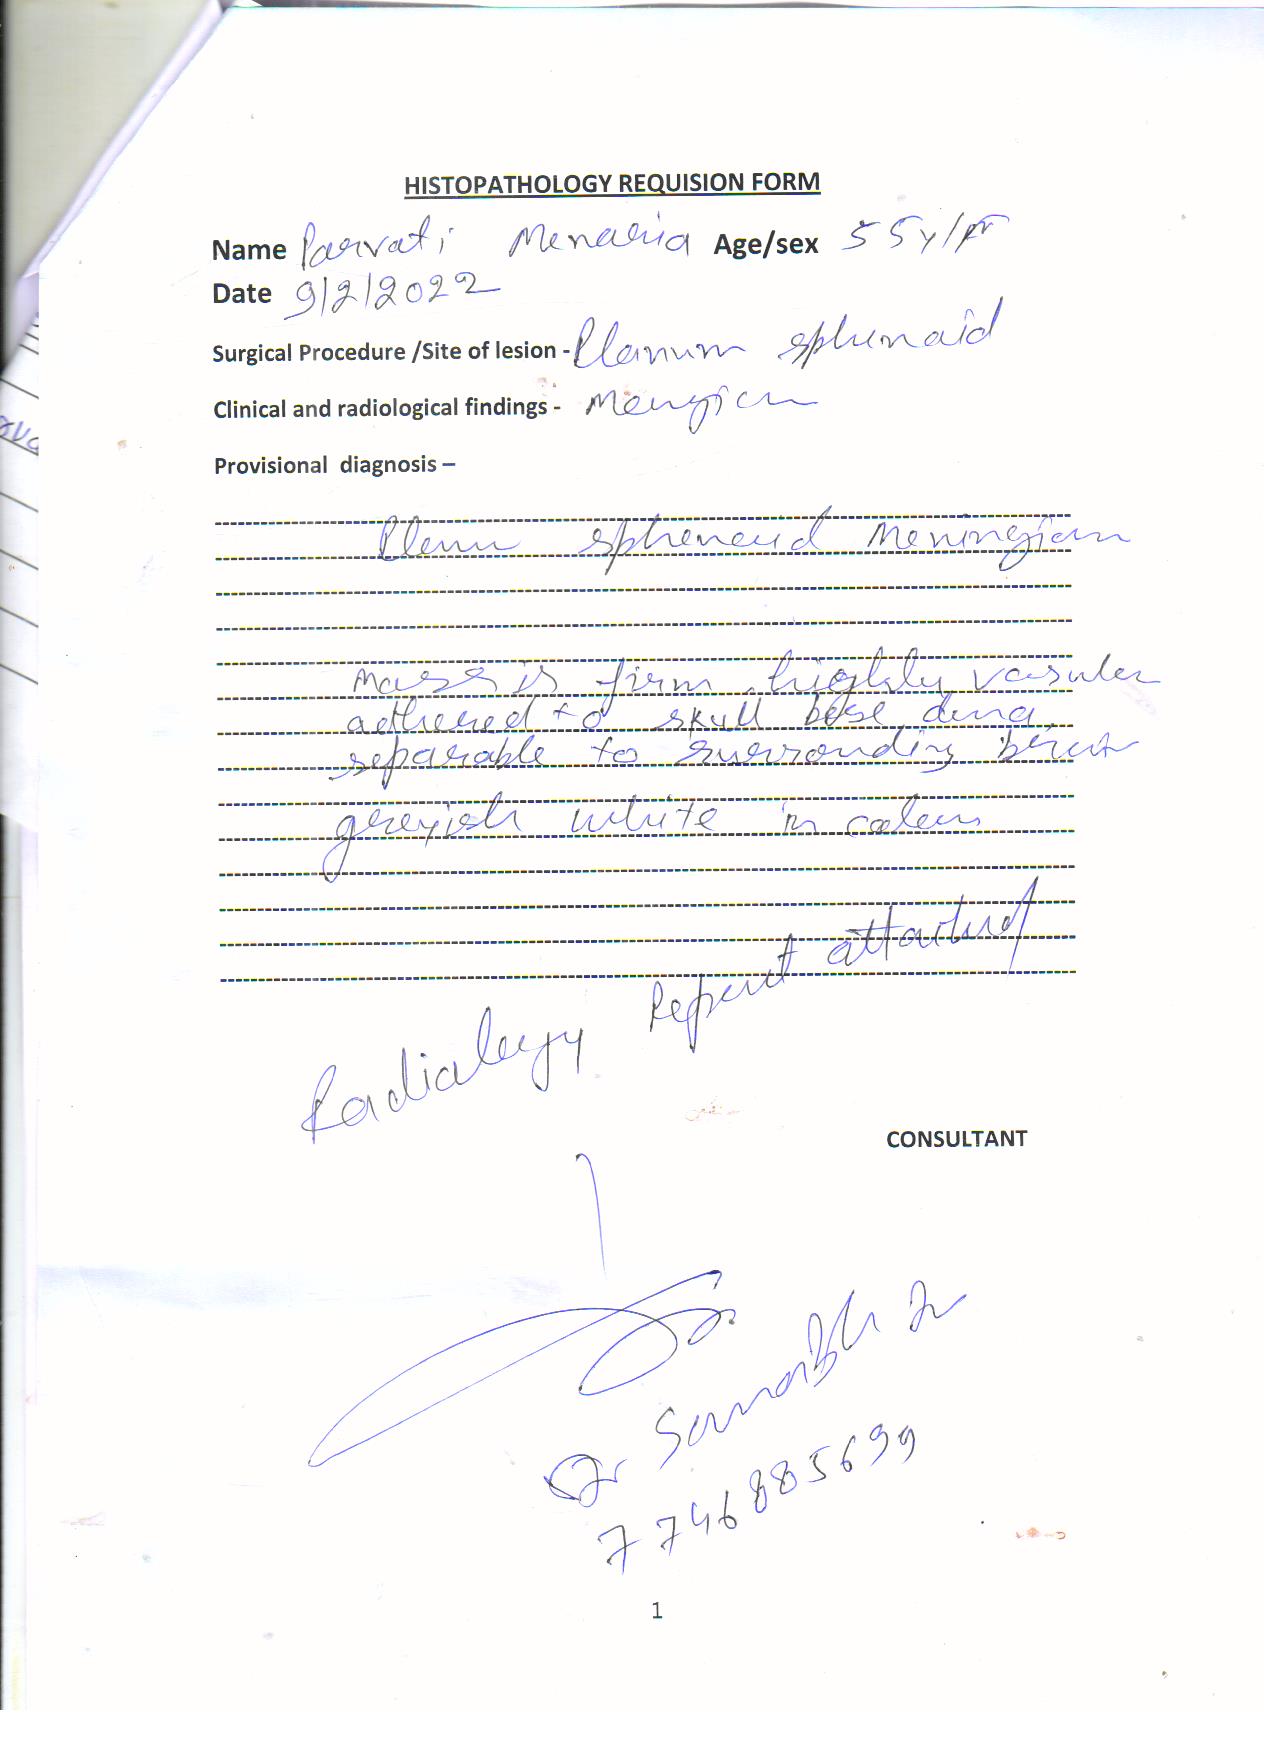 HISTOPATHOLOGY REQUISION FORM
Name Parvati Menaria Age/sex 55y/F
Date 9/2/2022
Surgical Procedure /Site of lesion - Planum sphenoid
Clinical and radiological findings -
Provisional diagnosis –
sphenoid Meningiom
Mass is firm, highly vascular
adhered to skull base dura,
separable to surronding
greyish white in colour
Radiology Report attached
CONSULTANT
Dr
7746885699
1